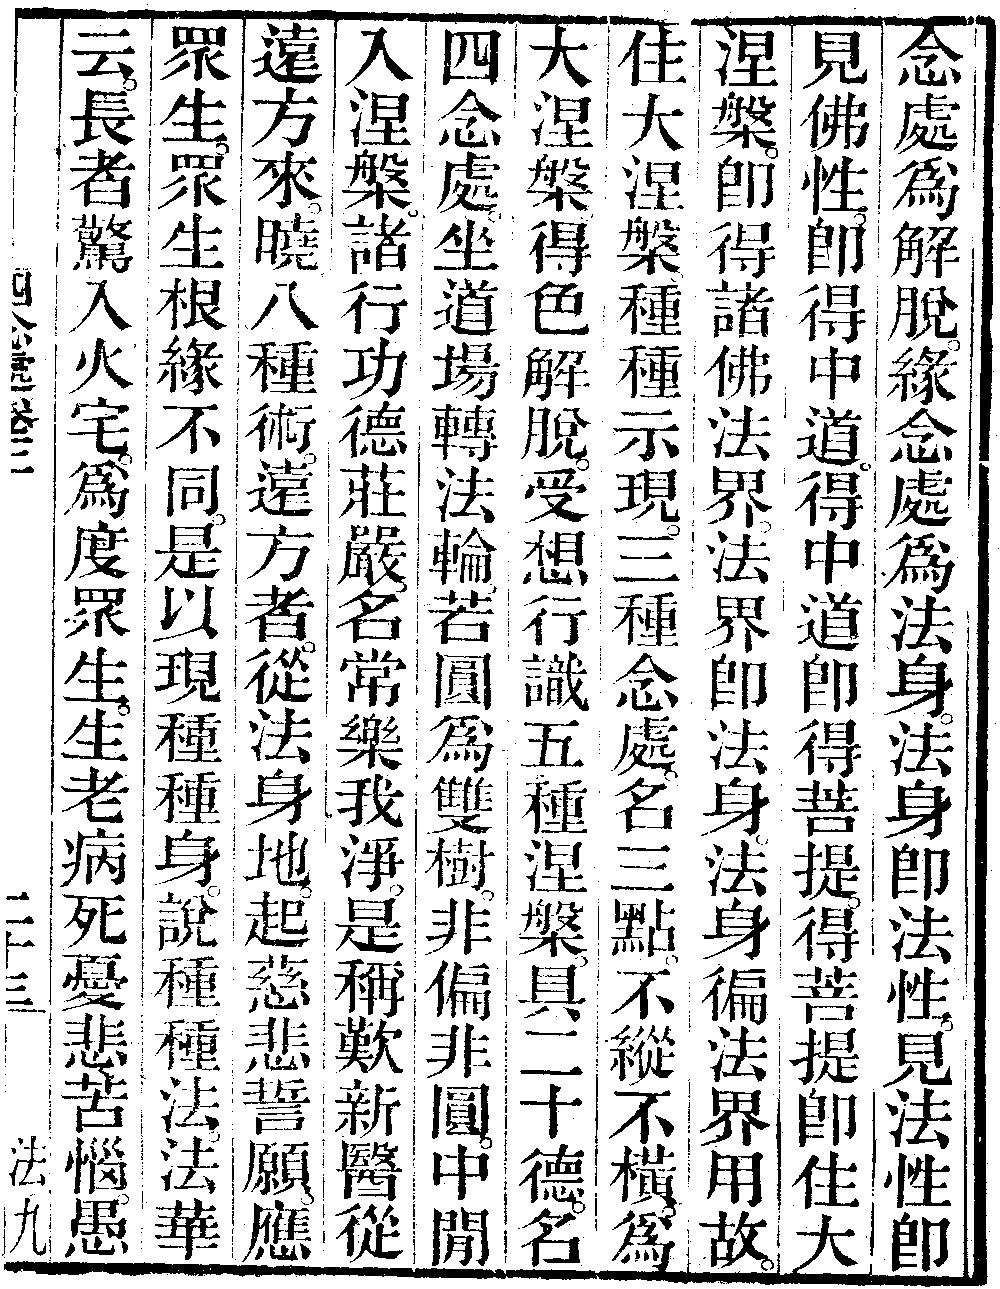 念處爲解脫。緣念處爲法身。法身卽法性。見法性卽
見佛性。卽得中道。得中道卽得菩提。得菩提卽住大
涅槃。卽得諸佛法界。法界卽法身。法身徧法界用故。
住大涅槃。種種示現。三種念處。名三點。不縱不橫。爲
大涅槃。得色解脫。受想行識五種涅槃。具二十德。名
四念處。坐道場轉法輪。若圓爲雙樹。非偏非圓。中閒
入涅槃。諸行功德莊嚴。名常樂我淨。是稱歎新醫從
遠方來。曉八種術。遠方者。從法身地。起慈悲誓願。應
眾生。眾生根緣不同。是以現種種身。說種種法。法華
云。長者驚入火宅。爲度眾生。生老病死憂悲苦惱。愚
四念處卷三 二十三 法九